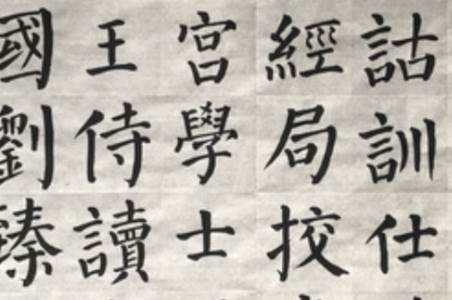 詁訓仕
經局挍
宮學士
王侍讀
國劉臻